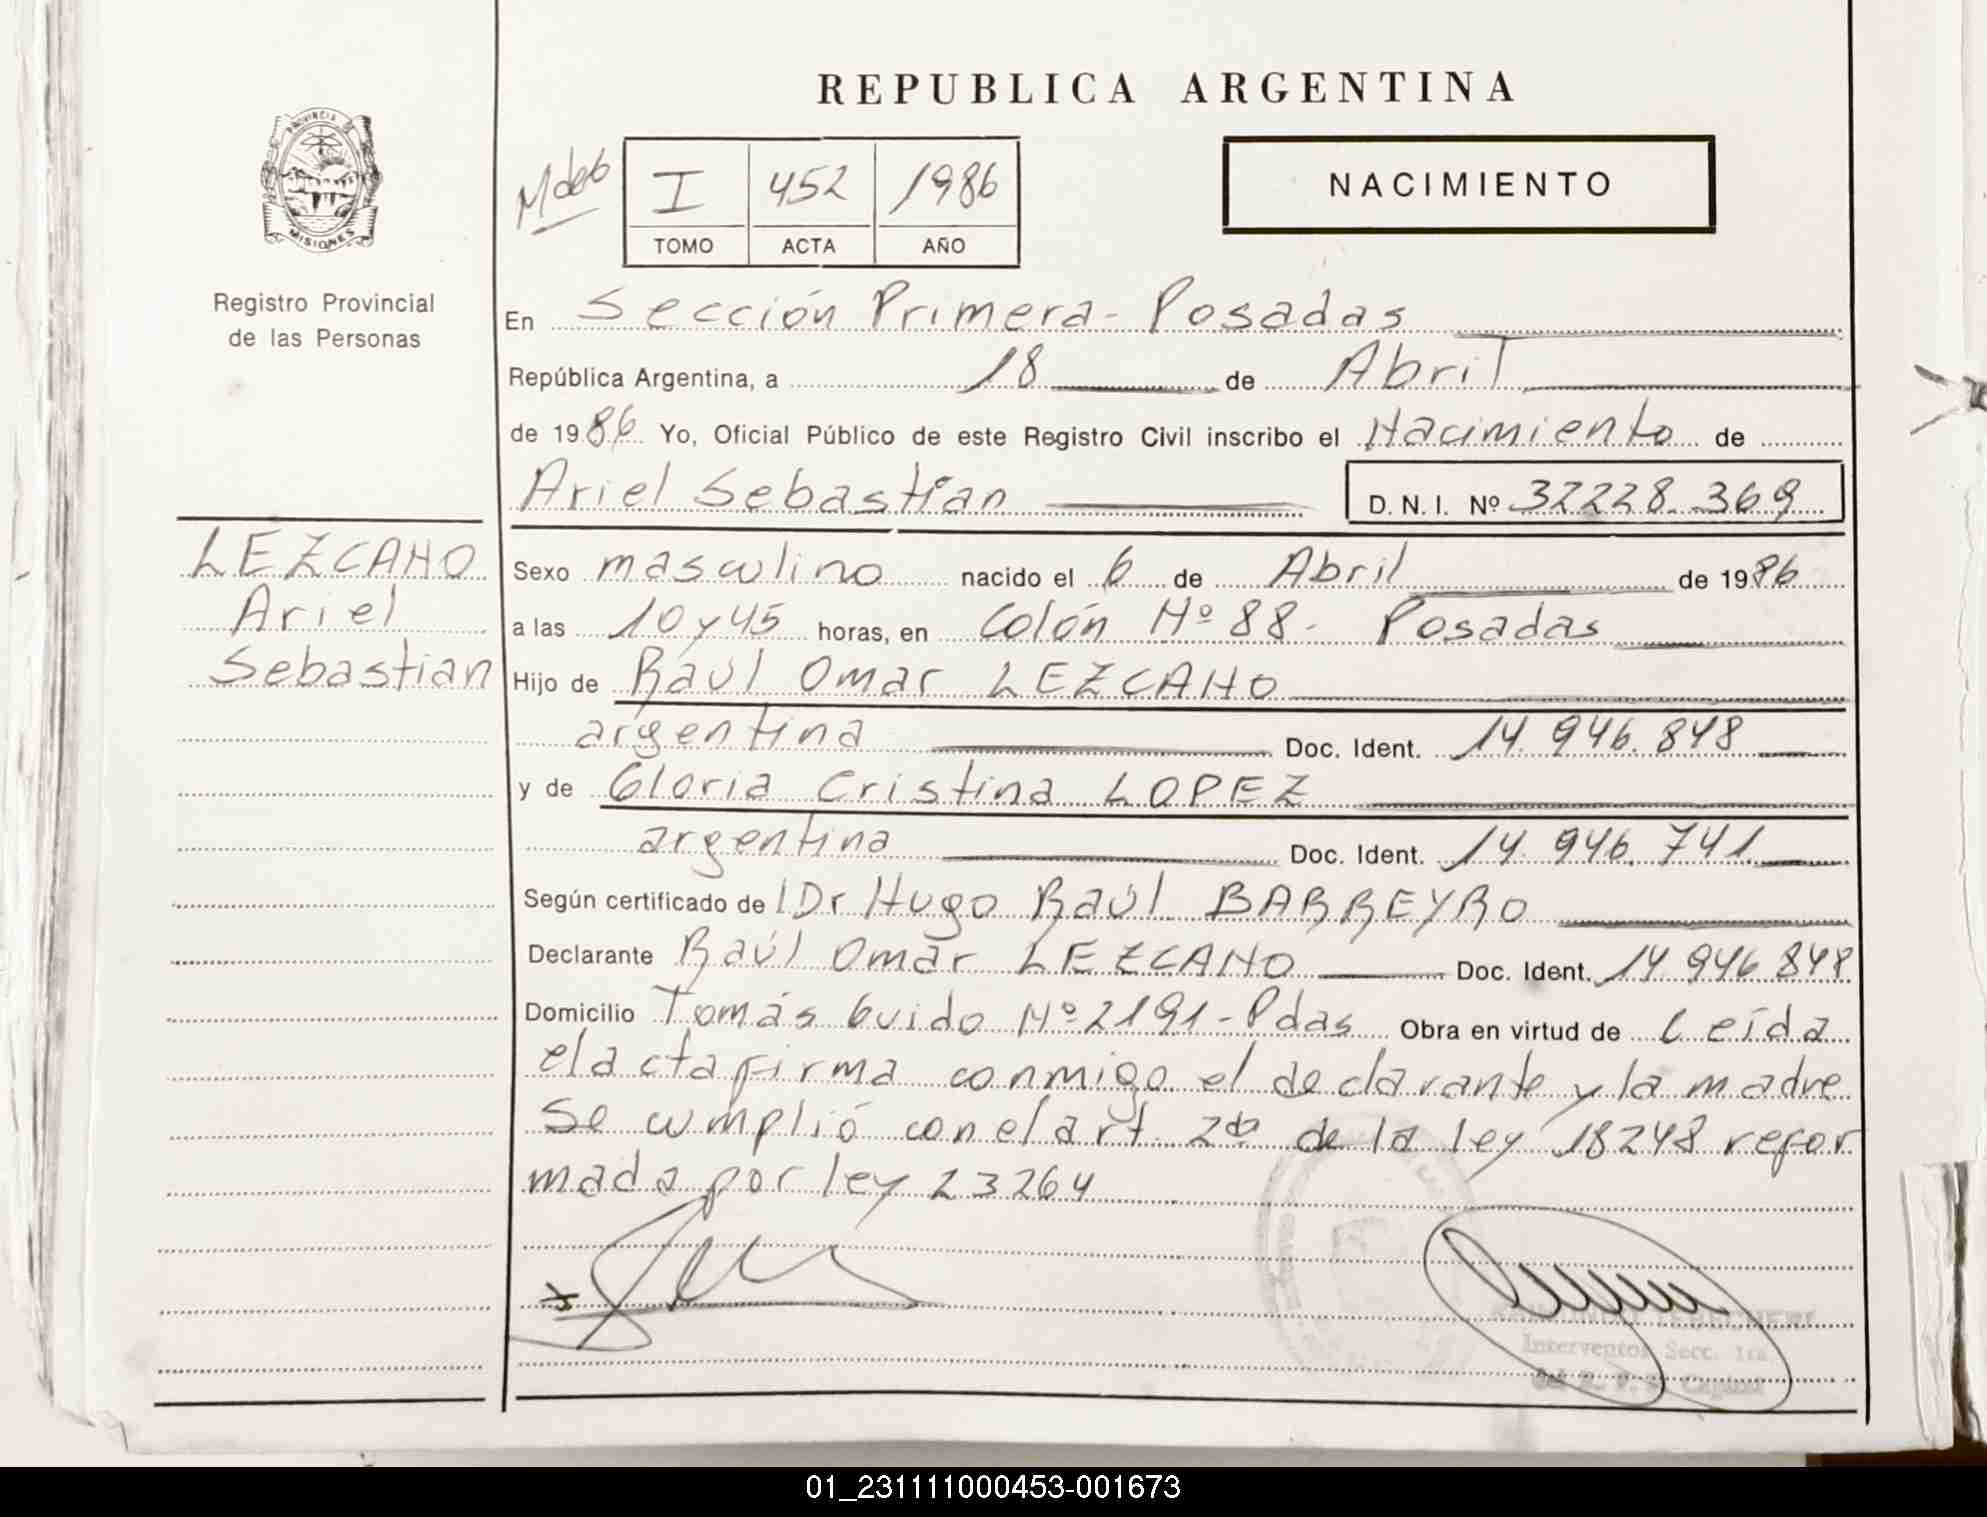 REPUBLICA ARGENTINA
PROVINCIA DE
MISIONES
Registro Provincial
de las Personas
I 452 1986
TOMO ACTA AÑO
NACIMIENTO
En Sección Primera - Posadas
República Argentina, a 18 de Abril
de 1986 Yo, Oficial Público de este Registro Civil inscribo el Nacimiento de
Ariel Sebastian D.N.I. Nº 32228.369
LEZCANO
Ariel
Sebastian
Sexo masculino nacido el 6 de Abril de 1986
a las 10 y 45 horas, en Colón Nº 88 - Posadas
Hijo de Raúl Omar LEZCANO
argentina Doc. Ident. 14.946.848
y de Gloria Cristina LOPEZ
argentina Doc. Ident. 14.946.741
Según certificado de l Dr Hugo Raúl BARREYRO
Declarante Raúl Omar LEZCANO Doc. Ident. 14 946 848
Domicilio Tomás Guido Nº 2191 - Pdas Obra en virtud de Leída
el acta firma conmigo el declarante y la madre
Se cumplió con el art 2do de la ley 18248 refor
mada por ley 23264
Interventor Secc. 1ra
Capital
01_231111000453-001673